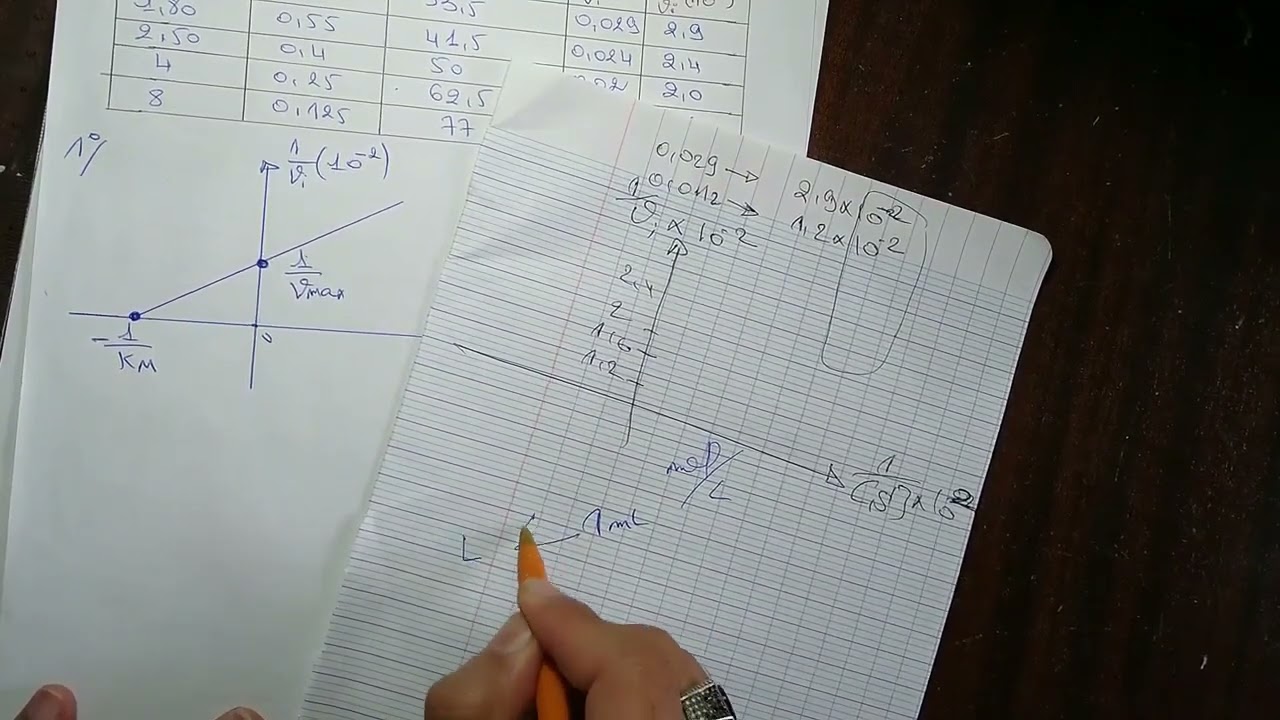 1,80 0,55 33,5 0,029 2,9
2,50 0,4 41,5 0,024 2,4
4 0,25 50 2,0
8 0,125 62,5
77
1°/
1/vi (10⁻²)
1/Vmax
0
-1/KM
0,029 → 2,9 x 10⁻²
0,012 → 1,2 x 10⁻²
1/vi x 10⁻²
2,4
2
1,6
1,2
1/[S] x 10⁻²
mol/L
1 mL
L